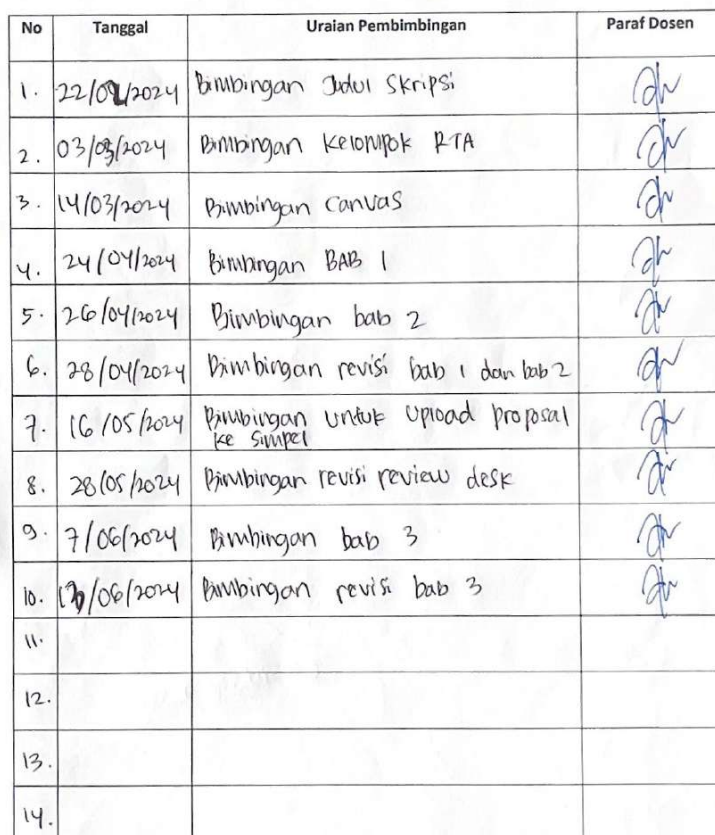 No Tanggal Uraian Pembimbingan Paraf Dosen
1. 22/02/2024 Bimbingan Judul Skripsi
2. 03/03/2024 Bimbingan Kelompok RTA
3. 14/03/2024 Bimbingan Canvas
4. 24/04/2024 Bimbingan BAB 1
5. 26/04/2024 Bimbingan bab 2
6. 28/04/2024 Bimbingan revisi bab 1 dan bab 2
7. 16/05/2024 Bimbingan untuk upload proposal
ke simpel
8. 28/05/2024 Bimbingan revisi review desk
9. 7/06/2024 Bimbingan bab 3
10. Bimbingan revisi bab 3
11.
12.
13.
14.